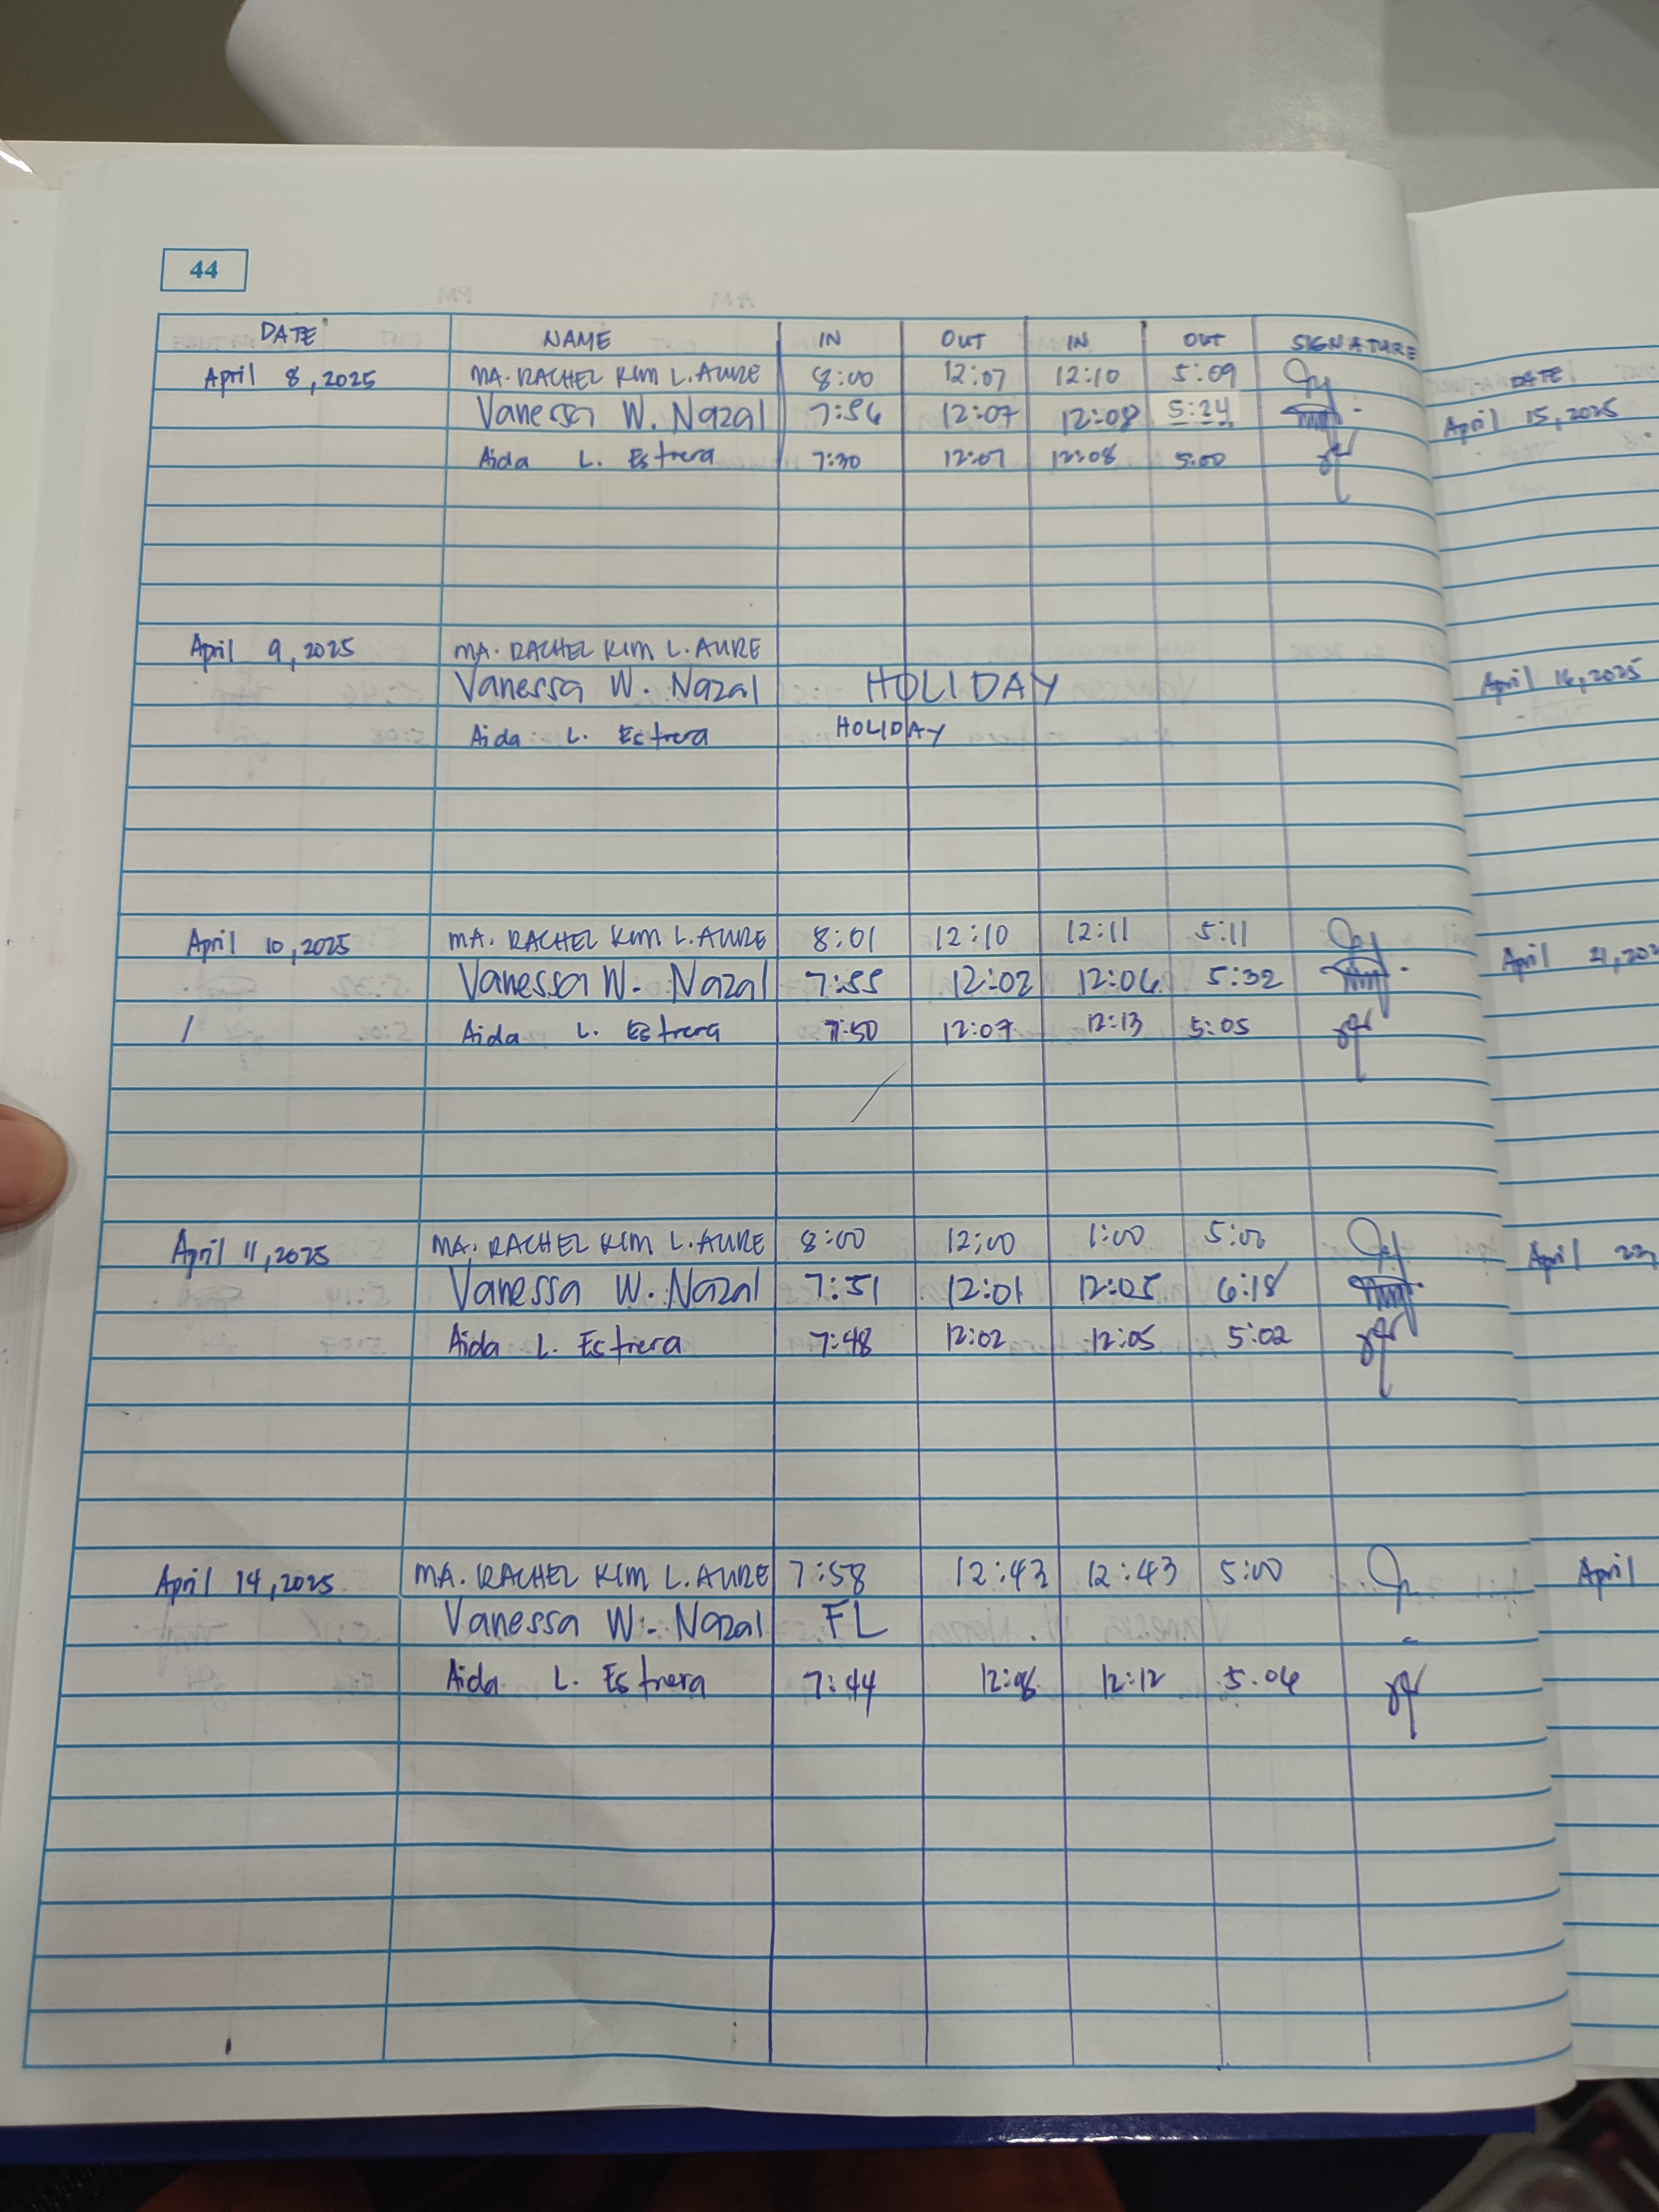 44
DATE NAME IN OUT IN OUT SIGNATURE
April 8, 2025 MA. RACHEL KIM L. AURE 8:00 12:07 12:10 5:09
Vanessa W. Nazal 7:56 12:07 12:08 5:24
Aida L. Estrera 7:30 12:07 12:08 5:00
April 9, 2025 MA. RACHEL KIM L. AURE
Vanessa W. Nazal HOLIDAY
Aida L. Estrera HOLIDAY
April 10, 2025 MA. RACHEL KIM L. AURE 8:01 12:10 12:11 5:11
Vanessa W. Nazal 7:55 12:02 12:06 5:32
/ Aida L. Estrera 7:50 12:07 12:13 5:05
April 11, 2025 MA. RACHEL KIM L. AURE 8:00 12:00 1:00 5:00
Vanessa W. Nazal 7:51 12:01 12:05 6:18
Aida L. Estrera 7:48 12:02 12:05 5:02
April 14, 2025 MA. RACHEL KIM L. AURE 7:58 12:43 12:43 5:00
Vanessa W. Nazal FL
Aida L. Estrera 7:44 12:12 5.06
DATE
April 15, 2025
April 16, 2025
April
April
April